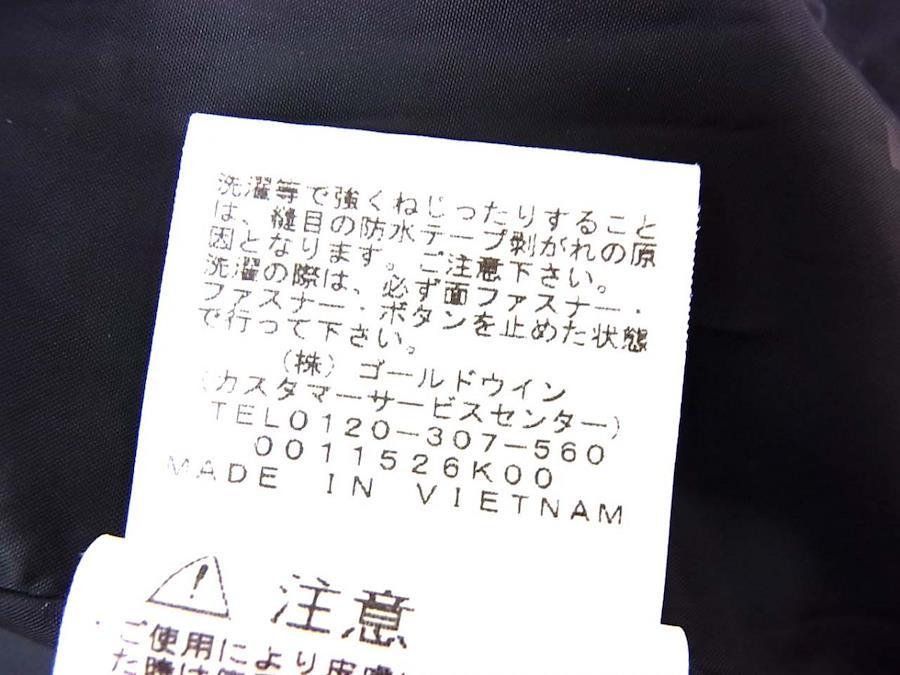 洗濯等で強くねじったりすること
は、縫目の防水テープ剥がれの原
因となります。ご注意下さい。
洗濯の際は、必ず面ファスナー．
ファスナー．ボタンを止めた状態
で行って下さい。
(株) ゴールドウイン
(カスタマーサービスセンター)
TEL0120-307-560
0011526K00
MADE IN VIETNAM
注意
ご使用により皮膚
た時は